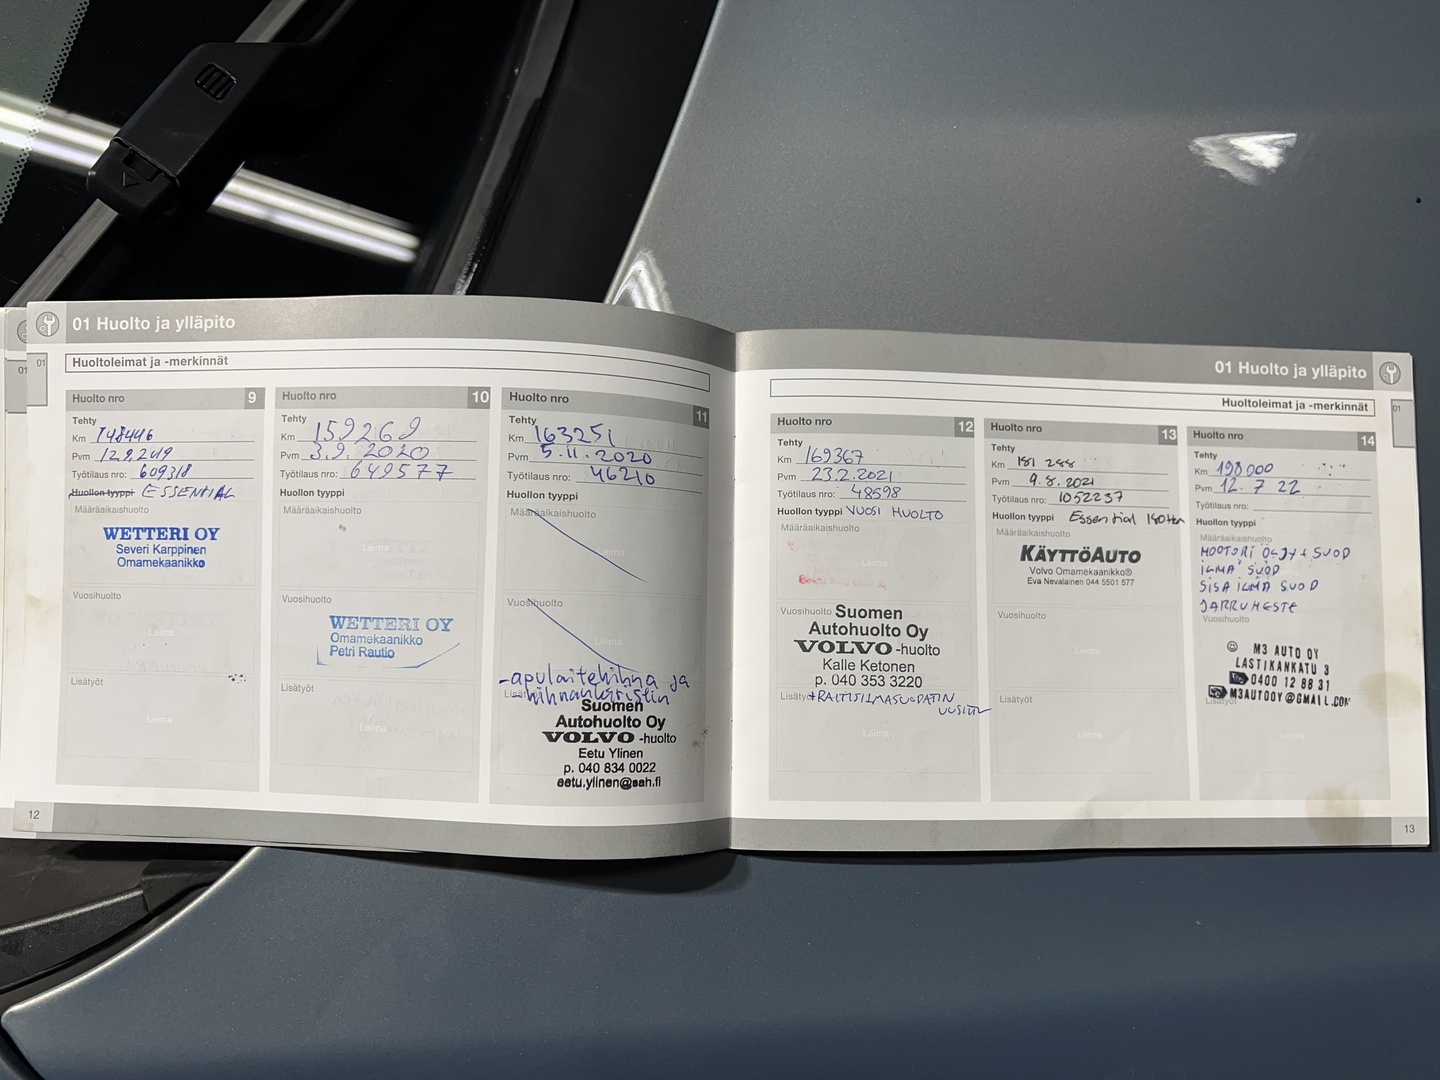 01 Huolto ja ylläpito
01
01
Huoltoleimat ja -merkinnät
Huolto nro 9
Tehty
Km 148446
Pvm 12.9.2019
Työtilaus nro: 609318
Huollon tyyppi ESSENTIAL
Määräaikaishuolto
WETTERI OY
Severi Karppinen
Omamekaanikko
Vuosihuolto
Leima
Lisätyöt
Leima
Huolto nro 10
Tehty
Km 159269
Pvm 3.9.2020
Työtilaus nro: 649577
Huollon tyyppi
Määräaikaishuolto
Leima
Vuosihuolto
WETTERI OY
Omamekaanikko
Petri Rautio
Lisätyöt
Leima
Huolto nro 11
Tehty
Km 163251
Pvm 5.11.2020
Työtilaus nro: 46210
Huollon tyyppi
Määräaikaishuolto
Leima
Vuosihuolto
Leima
-apulaitehihna ja
hihnankiristin
Lisätyöt
Suomen
Autohuolto Oy
VOLVO -huolto
Eetu Ylinen
p. 040 834 0022
eetu.ylinen@sah.fi
12
01 Huolto ja ylläpito
Huoltoleimat ja -merkinnät
01
Huolto nro 12
Tehty
Km 169367
Pvm 23.2.2021
Työtilaus nro: 48598
Huollon tyyppi VUOSI HUOLTO
Määräaikaishuolto
Leima
Vuosihuolto
Suomen
Autohuolto Oy
VOLVO -huolto
Kalle Ketonen
p. 040 353 3220
Lisätyöt +RAITISILMASUODATIN
UUSITTU
Leima
Huolto nro 13
Tehty
Km 181 288
Pvm 9.8.2021
Työtilaus nro: 1052237
Huollon tyyppi Essential 180tkm
Määräaikaishuolto
KÄYTTÖAUTO
Volvo Omamekaanikko®
Eva Nevalainen 044 5501 577
Vuosihuolto
Leima
Lisätyöt
Leima
Huolto nro 14
Tehty
Km 198000
Pvm 12.7 22
Työtilaus nro:
Huollon tyyppi
Määräaikaishuolto
MOOTORI ÖLJY + SUOD
ILMA SUOD
SISÄ ILMA SUOD
JARRUNESTE
Vuosihuolto
M3 AUTO OY
LASTIKANKATU 3
0400 12 88 31
M3AUTOOY@GMAIL.COM
Lisätyöt
Leima
13